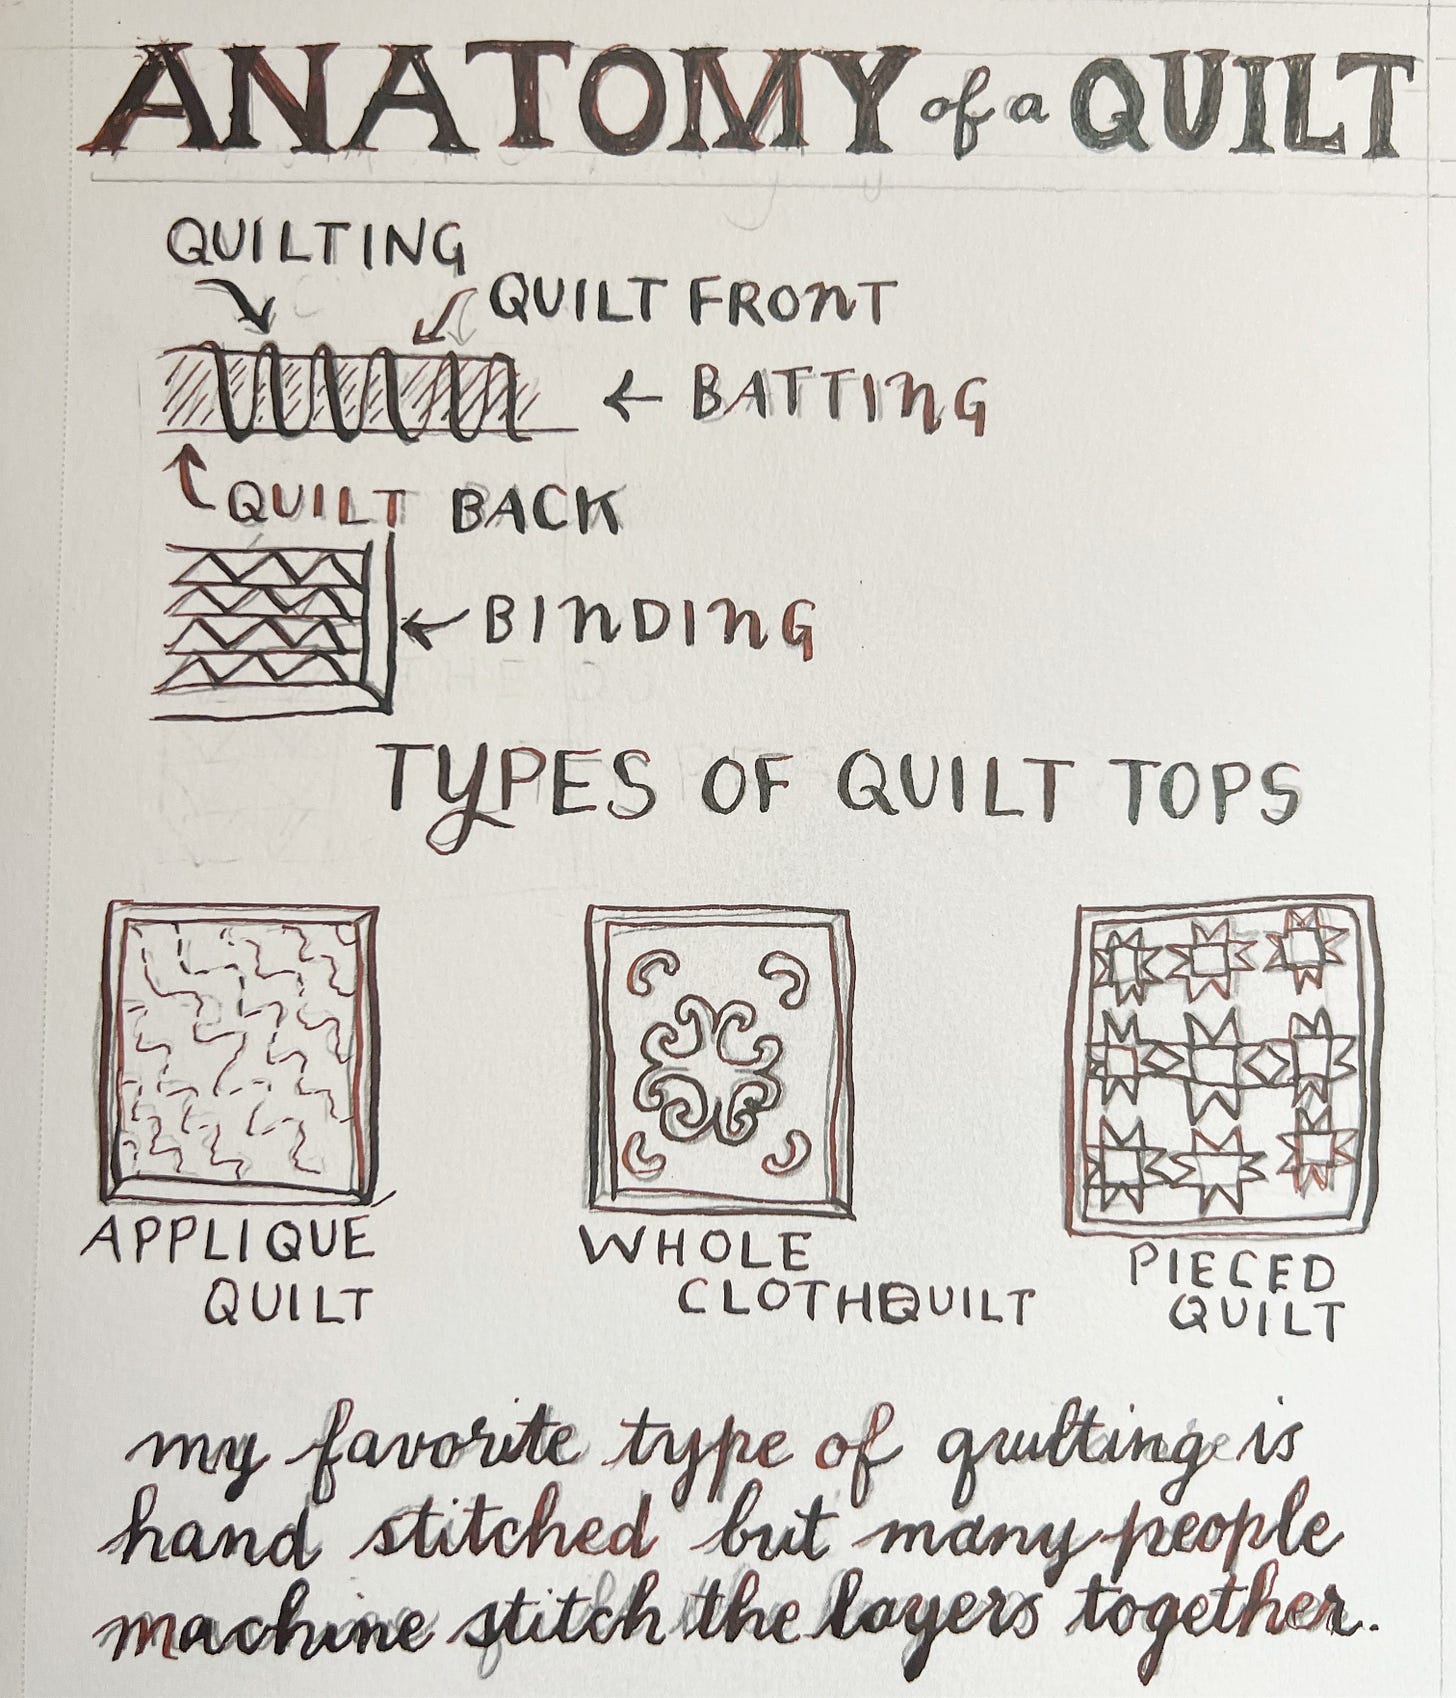 ANATOMY of a QUILT
QUILTING
QUILT FRONT
BATTING
QUILT BACK
BINDING
TYPES OF QUILT TOPS
APPLIQUE
QUILT
WHOLE
CLOTH QUILT
PIECED
QUILT
my favorite type of quilting is
hand stitched but many people
machine stitch the layers together.